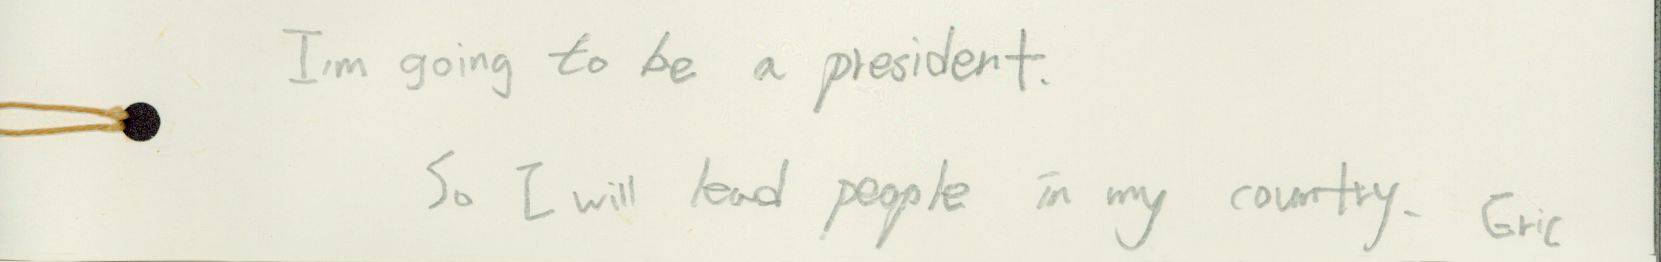 I'm going to be a president.
So I will lead people in my country. Eric